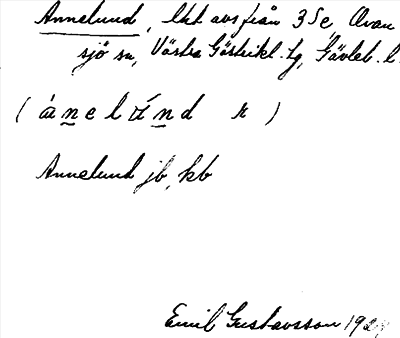 Annelund, lht avs från 3 Se, Ovan
sjö sn, Västra Gästrikl. tg, Gävleb. l.
( ánelúnd r )
Annelund jb, kb
Emil Gustavsson